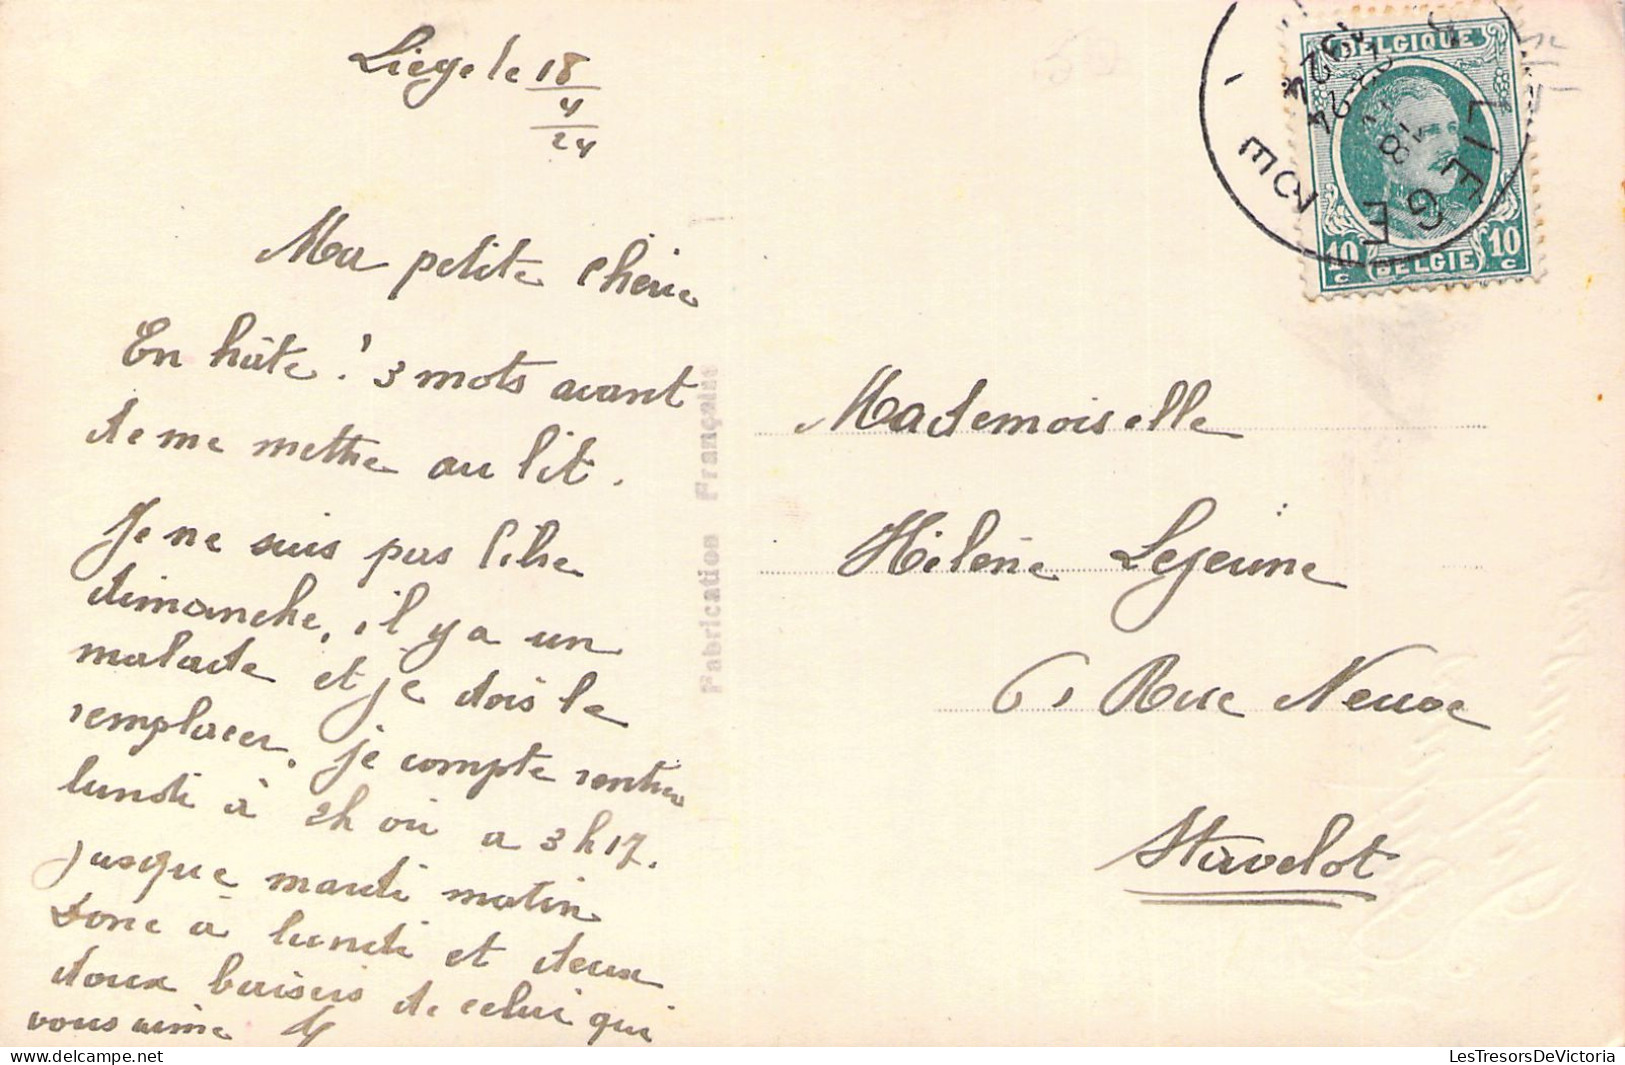 Liège le 18
4
24
Ma petite chérie
En hâte ! 3 mots avant
de me mettre au lit.
Je ne suis pas libre
dimanche, il y a un
malade et je dois le
remplacer, je compte rentrer
lundi à 2h ou a 3h17.
jusque mardi matin
Donc à lundi et deux
doux baisers de celui qui
vous aime
Fabrication Française
BELGIQUE
10 c (BELGIE) 10 c
LIEGE
1924
Mademoiselle
Hélène Lejeune
6, Rue Neuve
Stavelot
LesTresorsDeVictoria